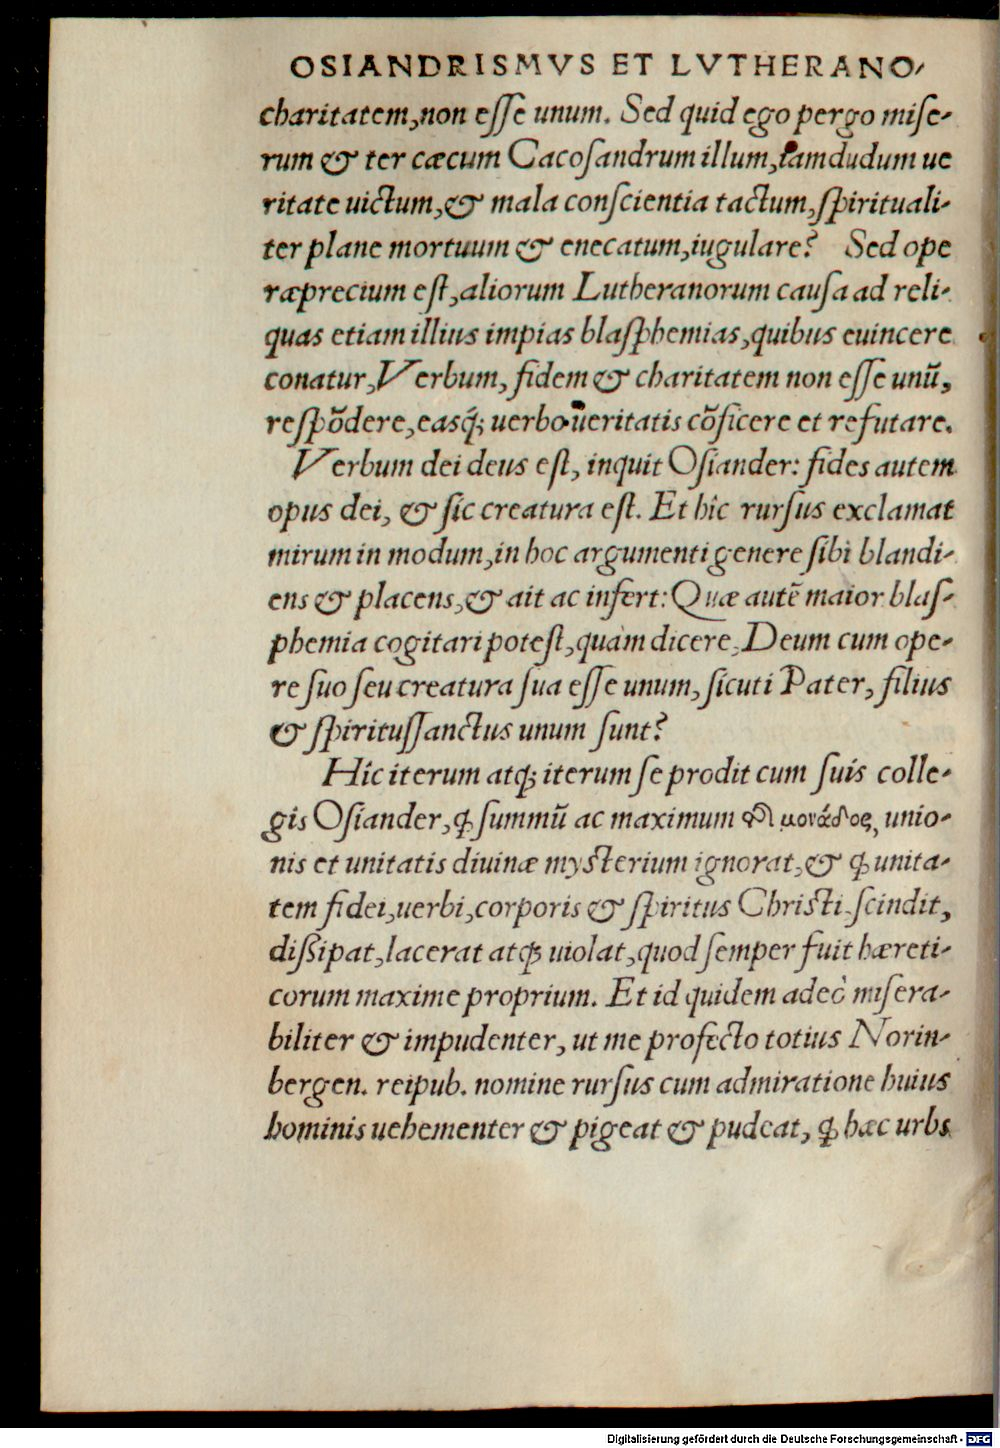 OSIANDRISMVS ET LVTHERANO-
charitatem, non eſſe unum. Sed quid ego pergo miſe-
rum & ter cæcum Cacoſandrum illum, iamdudum ue
ritate uictum, & mala conſcientia tactum, ſpirituali-
ter plane mortuum & enecatum, iugulare? Sed ope
ræprecium eſt, aliorum Lutheranorum cauſa ad reli-
quas etiam illius impias blaſphemias, quibus euincere
conatur, Verbum, fidem & charitatem non eſſe unū,
reſpōdere, easq́; uerbo ueritatis cōficere et refutare.
Verbum dei deus eſt, inquit Oſiander: fides autem
opus dei, & ſic creatura eſt. Et hîc rurſus exclamat
mirum in modum, in hoc argumenti genere ſibi blandi-
ens & placens, & ait ac infert: Quæ autē maior blaſ-
phemia cogitari poteſt, quàm dicere, Deum cum ope-
re ſuo ſeu creatura ſua eſſe unum, ſicuti Pater, filius
& ſpirituſſanctus unum ſunt?
Hîc iterum atq; iterum ſe prodit cum ſuis colle-
gis Oſiander, ꝙ ſummū ac maximum τῆς μονάδος, unio-
nis et unitatis diuinæ myſterium ignorat, & ꝙ unita-
tem fidei, uerbi, corporis & ſpiritus Chriſti ſcindit,
diſſipat, lacerat atq; uiolat, quod ſemper fuit hæreti-
corum maxime proprium. Et id quidem adeò miſera-
biliter & impudenter, ut me profecto totius Norin-
bergen. reipub. nomine rurſus cum admiratione huius
hominis uehementer & pigeat & pudeat, ꝙ hæc urbs
Digitalisierung gefördert durch die Deutsche Forschungsgemeinschaft - DFG